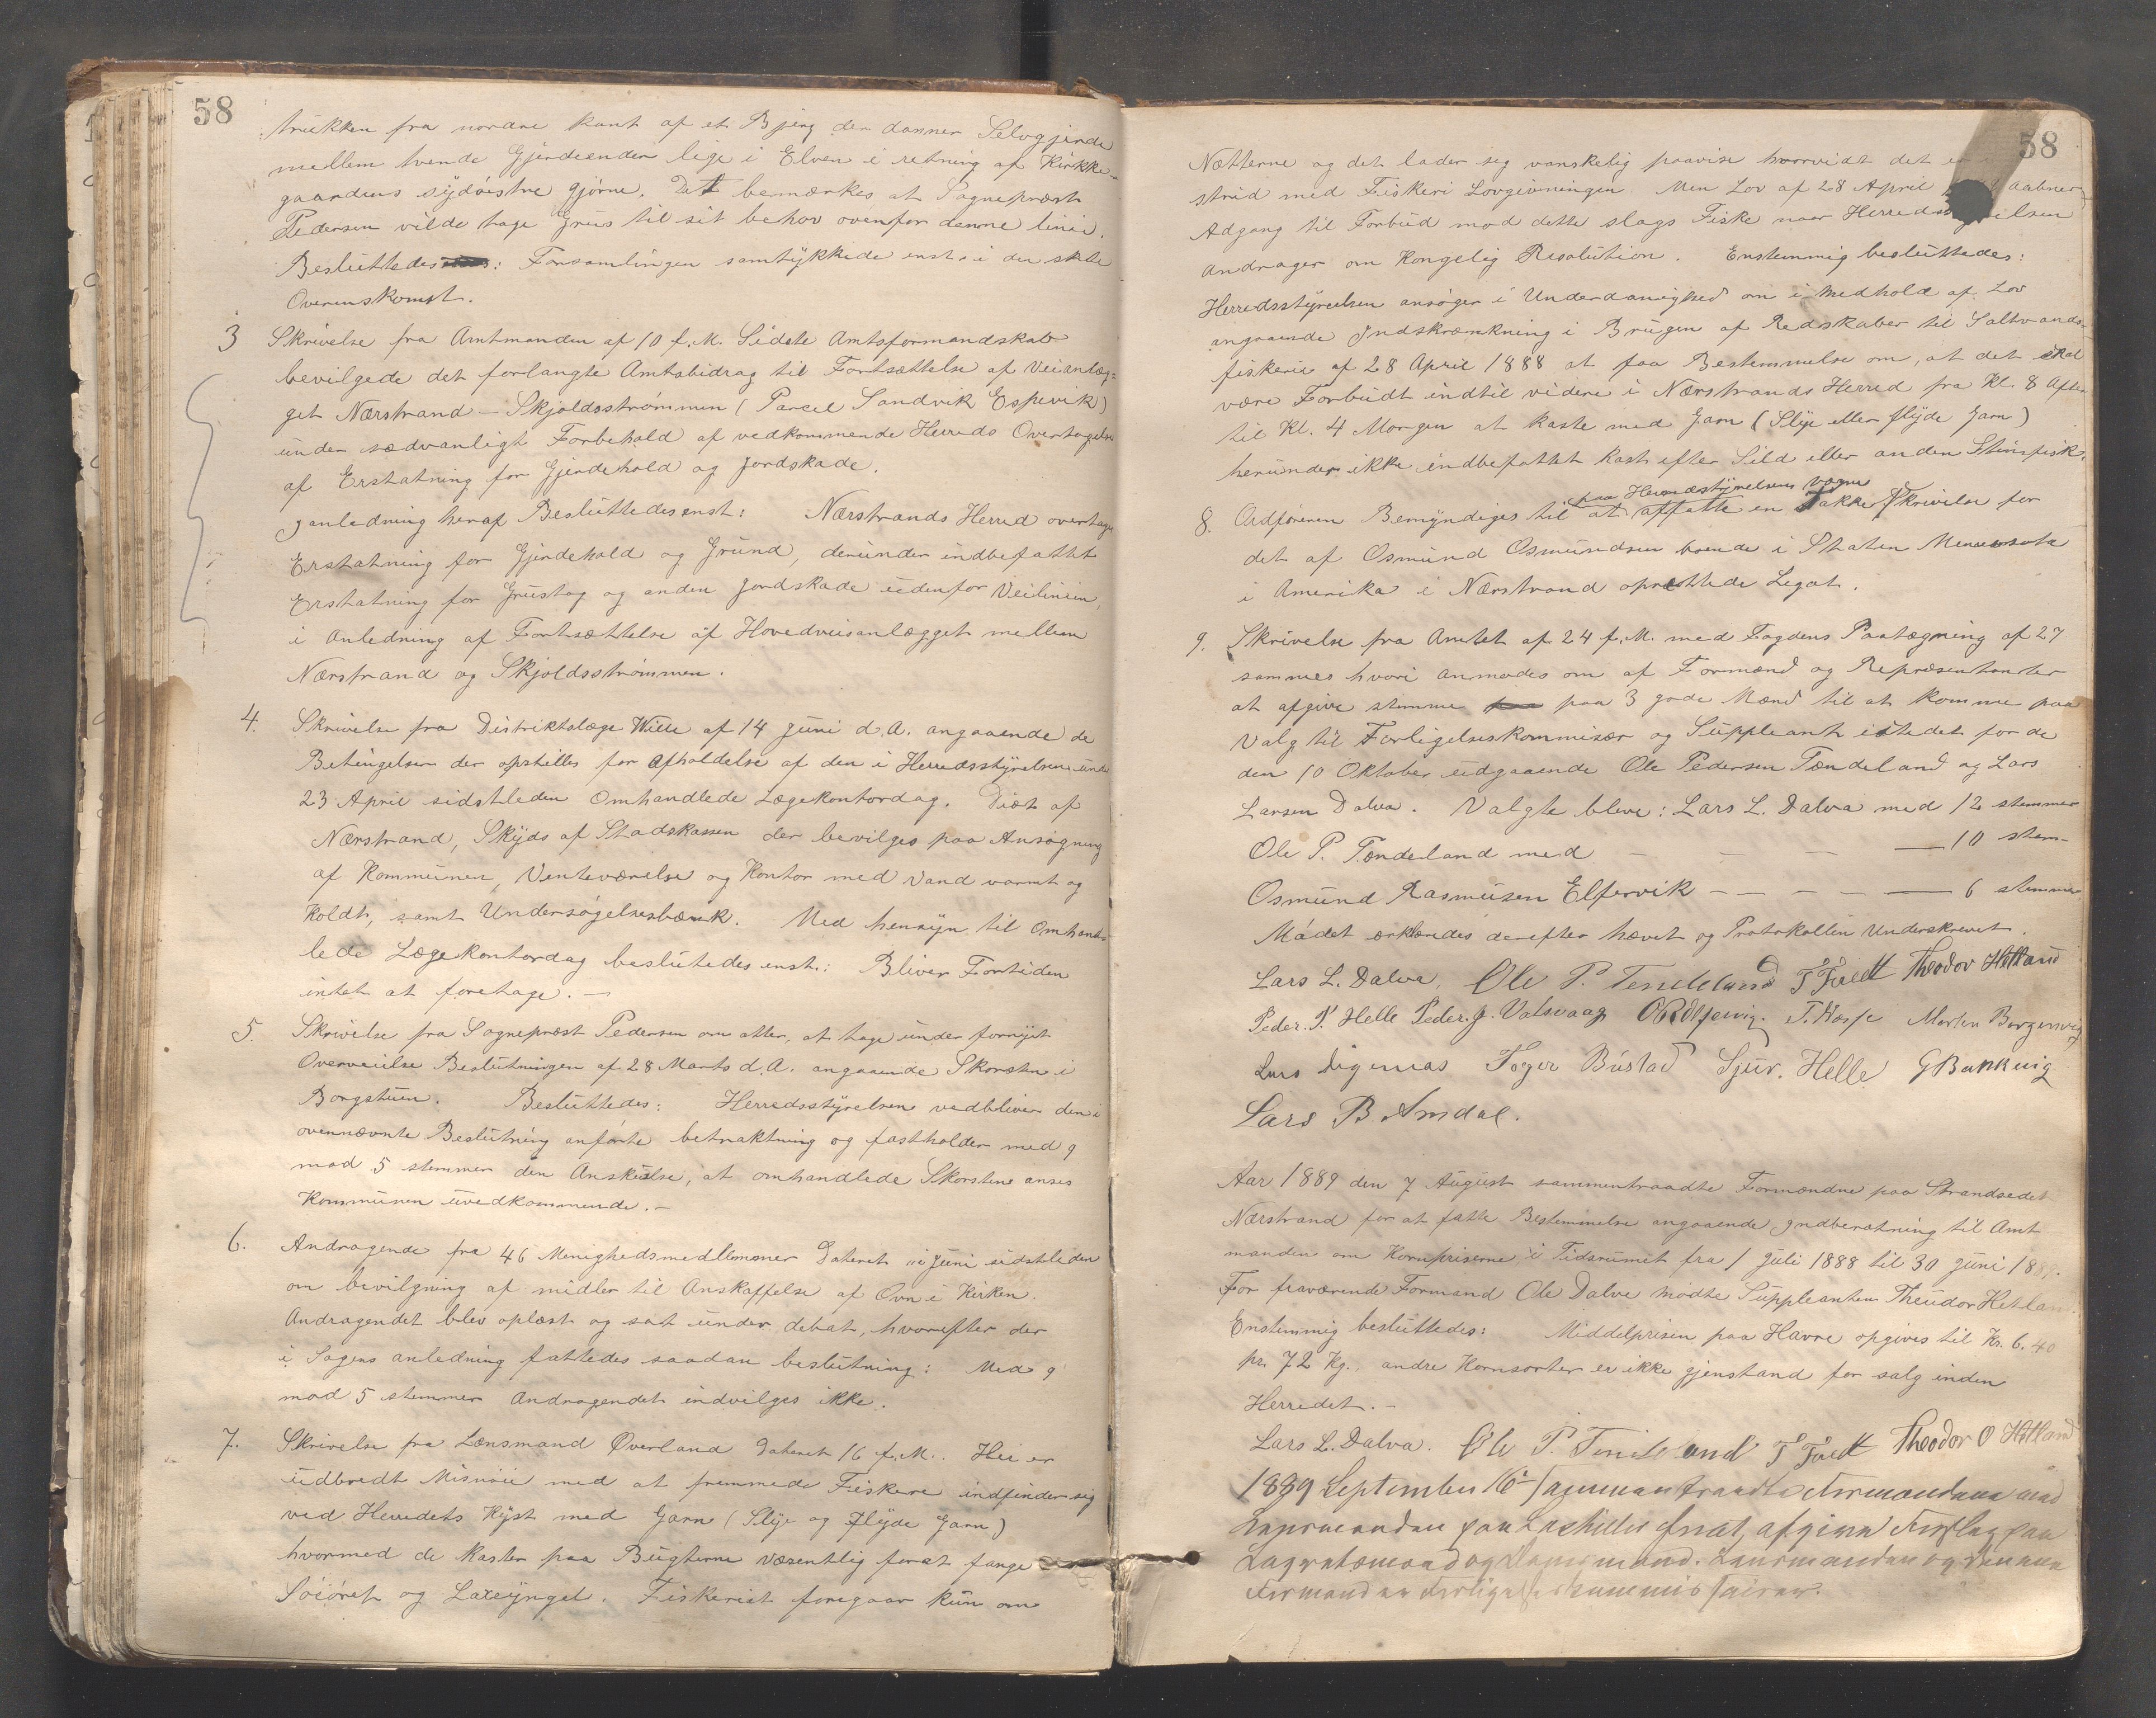 58
trukken fra nordre kant af et Bjerg der danner Selvgjerde
mellem tvende Gjerdeender lige i Elven i retning af Kirke-
gaardens sydöstre Hjörne. Det bemærkes at Sognepræst
Pedersen vilde tage Grus til sit behov ovenfor denne linie.
Besluttedes: Forsamlingen samtykkede enst. i den skete
Overenskomst.
3 Skrivelse fra Amtmanden af 10 f. M. Sidste Amtsformandskab
bevilgede det forlangte Amtsbidrag til Fortsættelse af Veianlæg-
get Nærstrand – Skjoldsströmmen (Parcel Sandvik Espevik)
under sædvanligt Forbehold af vedkommende Herreds Overtagelse
af Erstatning for Gjerdehold og Jordskade.
I anledning heraf Besluttedes enst: Nærstrands Herred overtager
Erstatning for Gjerdehold og Grund, derunder indbefattet
Erstatning for Grustag og anden Jordskade udenfor Veilinien,
i Anledning af Fortsættelse af Hovedveisanlægget mellem
Nærstrand og Skjoldsströmmen.
4. Skrivelse fra Distriktslæge Wille af 14 Juni d.A. angaaende de
Betingelser der opstilles for Afholdelse af den i Herredsstyrelsen under
23 April sidstleden Omhandlede Lægekontordag. Diæt af
Nærstrand, Skyds af Stadskassen der bevilges paa Ansögning
af Kommunen, Venteværelse og Kontor med Vand varmt og
Koldt, samt Undersögelsesbænk. Med hensyn til Omhand-
lede Lægekontordag beslutedes enst.: Bliver Fortiden
intet at foretage. –
5. Skrivelse fra Sognepræst Pedersen om atter, at tage under fornyet
Overveielse Beslutningen af 28 Marts d.A. angaaende Skorsten i
Borgstuen. Besluttedes: Herredsstyrelsen vedbliver den i
ovennævnte Beslutning anförte betraktning og fastholder med 9
mod 5 stemmer den Anskuelse, at omhandlede Skorstene anses
Kommunen uvedkommende. –
6. Andragende fra 46 Menighedsmedlemmer Dateret i Juni sidstleden
om bevilgning af midler til Anskaffelse af Ovn i Kirken.
Andragendet blev oplæst og sat under debat, hvorefter der
i Sagens anledning fattedes saadan beslutning: Med 9
mod 5 stemmer Andragendet indvilges ikke.
7. Skrivelse fra Lensmand Överland Dateret 16 f.M.. Her er
udbredt Misnöie med at fremmede Fiskere indfinder sig
ved Herredets Kyst med Garn (Slye og flyde Garn)
hvormed de kaster paa Bugterne væsentlig forat fange
Söiöret og Laxeyngel. Fiskeriet foregaar kun om
58
Nætterne og det lader seg vanskelig paavise hvorvidt det er
strid med Fiskeri Lovgivningen. Men Lov af 28 April aabner
Adgang til Forbud mod dette slags Fiske naar Herredsstyrelsen
andrager om Kongelig Resolution. Enstemmig besluttedes:
Herredsstyrelsen ansöger i Underdanighed om i Medhold af Lov
angaaende Indskrænkning i Brugen af Redskaber til Saltvands-
fiskerie af 28 April 1888 at faa Bestemmelse om, at det skal
være Forbudt indtil videre i Nærstrands Herred fra Kl. 8 Aften
til Kl. 4 Morgen at kaste med Garn (Slye eller flyde Garn)
herunder ikke indbefattet kast efter Sild eller anden Stimfisk.
paa Herredsstyrelsens vegne
8. Ordföreren Bemyndiges til at affatte en Takke Skrivelse for
det af Osmund Osmundsen boende i Staten Mennesota
i Amerika i Nærstrand oprettede Legat.
9. Skrivelse fra Amtet af 24 f.M. med Fogdens Paategning af 27
sammes hvori anmodes om af Formænd og Repræsentanter
at afgive stemme paa 3 gode Mænd til at komme paa
Valg til Forligelseskommisær og Suppleant istedet for de
den 10 Oktober udgaaende Ole Pedersen Tændeland og Lars
Larsen Dalva. Valgte blev: Lars L. Dalva med 12 stemmer
Ole P. Tændeland med – – – — 10 stem-
Osmund Rasmusen Elfervik – – – – — 6 stemmer
Mödet erklæredes derefter hævet og Protokollen Underskrevet.
Lars L. Dalva, Ole P. Tendeland T Tvedt Theodor Hetland
Peder. P. Helle Peder. J. Vatsvaag T. Hasse Morten Borgenvig
Lars Digenæs Toger Bustad Sjur. Helle G Bakkevig
Lars B. Amdal.
Aar 1889 den 7 August sammentraadte Formændne paa Strandsedet
Nærstrand for at fatte Bestemmelse angaaende Indberatning til Amt
manden om Kornpriserne i Tidsrumet fra 1 Juli 1888 til 30 Juni 1889.
For fraværende Formand Ole Dalve mödte Suppleanten Theudor Hetlan
Enstemmig besluttedes: Middelprisen paa Havre opgives til Kr. 6.40
pr. 72 Kg., andre Kornsorter er ikke gjenstand for salg inden
Herredet. –
Lars L. Dalva. Ole P. Tendeland T Tvedt Theodor O Hetland
1889 September 16 sammentraadte Formændene med
Lensmanden paa for at afgive Forslag paa
Lagretsmænd og mænd. Lensmanden og denne
Formænd er Forligelseskommissærer.